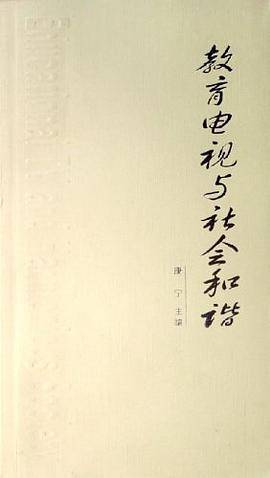 教育电视与社会和谐
康宁主编